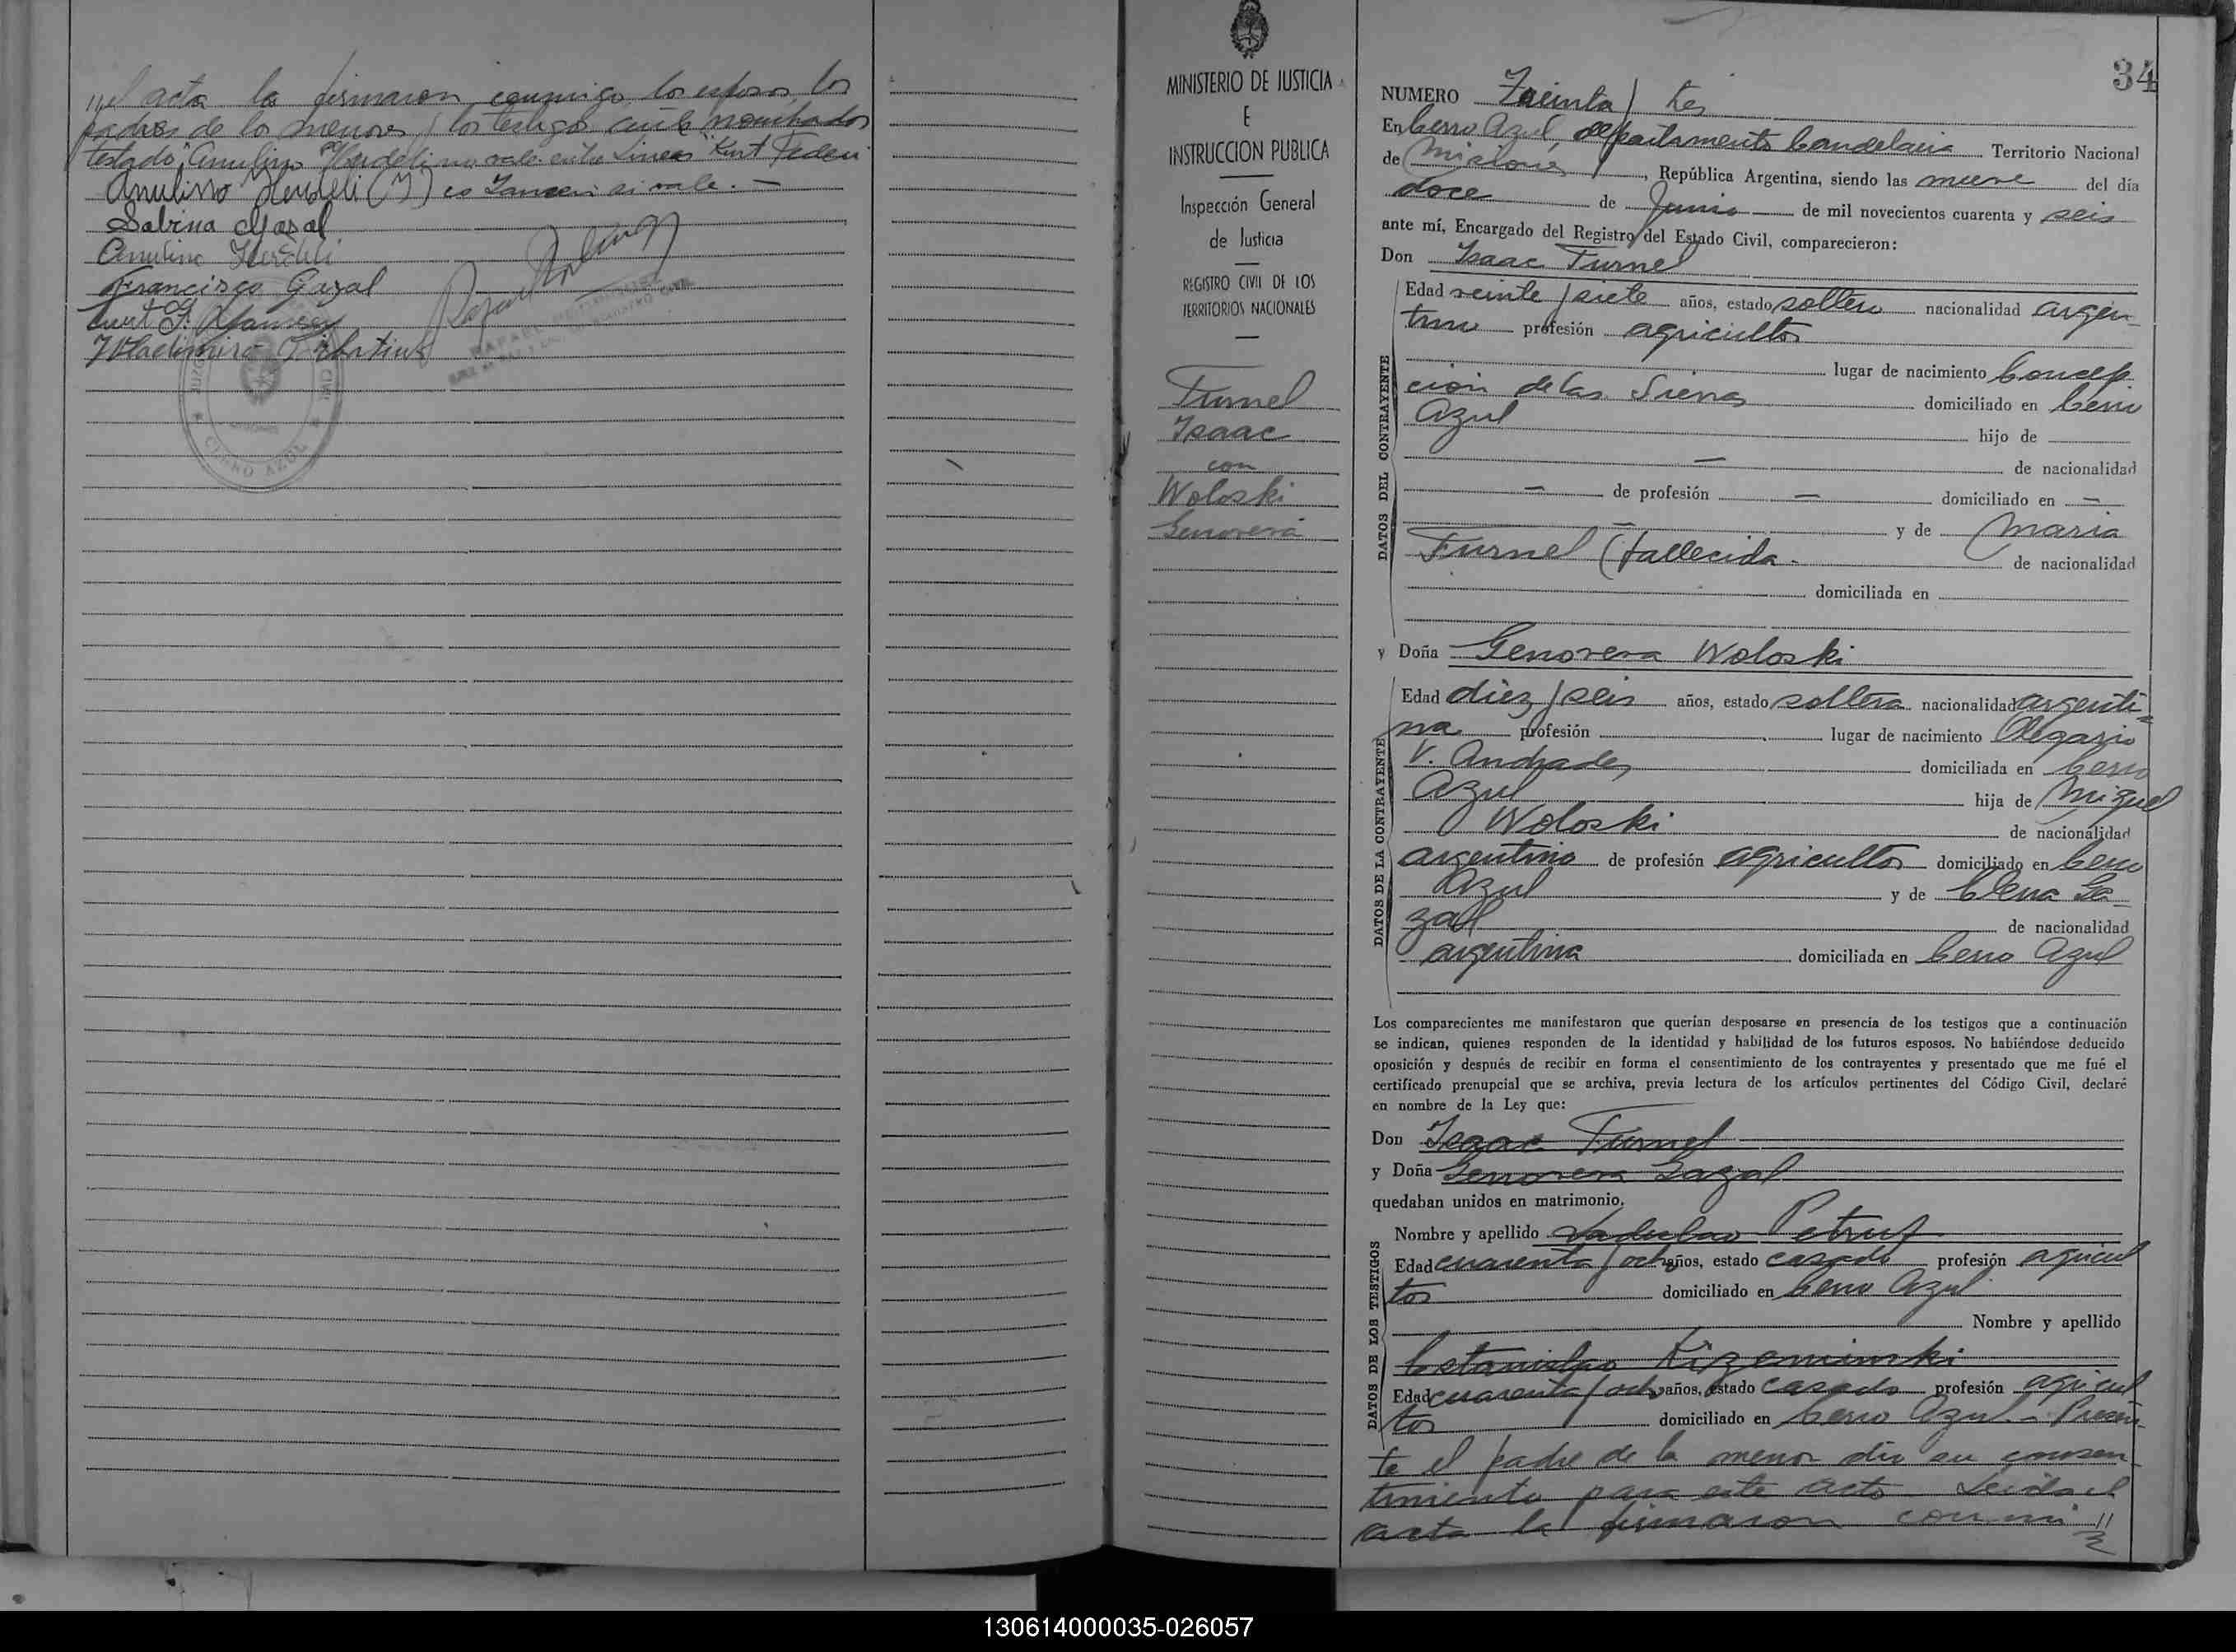 el acta la firmaron conmigo los esposos, los
padres de los menores y los testigos arriba nombrados
testado "Anulino Herdeli" no vale. entre lineas "Kurt Federi
Anulino Herdeli (H) co Jansen si vale. —
Sabina Gasal
Anulino Herdeli
Francisco Gazal
Kurt F. Jansen
Wladimiro
CERRO AZUL
MINISTERIO DE JUSTICIA
E
INSTRUCCION PUBLICA
Inspección General
de Justicia
REGISTRO CIVIL DE LOS
TERRITORIOS NACIONALES
Furnel
Isaac
con
Woloski
Genoveva
34
NUMERO Treinta y tres
En Cerro Azul departamento Candelaria Territorio Nacional
de Misiones, República Argentina, siendo las nueve del día
doce de Junio de mil novecientos cuarenta y seis
ante mí, Encargado del Registro del Estado Civil, comparecieron:
Don Isaac Furnel
DATOS DEL CONTRAYENTE
Edad veinte y siete años, estado soltero nacionalidad argen
tino profesión agricultor
lugar de nacimiento Concep
ción de las Sierras domiciliado en Cerro
Azul hijo de
— de nacionalidad
— de profesión — domiciliado en —
— y de Maria
Furnel (fallecida. de nacionalidad
domiciliada en
y Doña Genoveva Woloski
DATOS DE LA CONTRAYENTE
Edad diez y seis años, estado soltera nacionalidad argenti-
na profesión lugar de nacimiento Olegario
V. Andrades domiciliada en Cerro
Azul hija de Miguel
Woloski de nacionalidad
argentino de profesión agricultor domiciliado en Cerro
Azul y de Elena Ga
zal de nacionalidad
argentina domiciliada en Cerro Azul
Los comparecientes me manifestaron que querían desposarse en presencia de los testigos que a continuación
se indican, quienes responden de la identidad y habilidad de los futuros esposos. No habiéndose deducido
oposición y después de recibir en forma el consentimiento de los contrayentes y presentado que me fué el
certificado prenupcial que se archiva, previa lectura de los artículos pertinentes del Código Civil, declaré
en nombre de la Ley que:
Don Isaac Furnel
y Doña Genoveva Gazal
quedaban unidos en matrimonio.
DATOS DE LOS TESTIGOS
Nombre y apellido Ladislao Petruf
Edad cuarenta y ocho años, estado casado profesión agricul
tor domiciliado en Cerro Azul
Nombre y apellido
Estanislao Kizeminski
Edad cuarenta y ocho años, estado casado profesión agricul
tor domiciliado en Cerro Azul.- Presen-
te el padre de la menor dio su consen-
timiento para este acto. Leida el
acta la firmaron conmi //
130614000035-026057